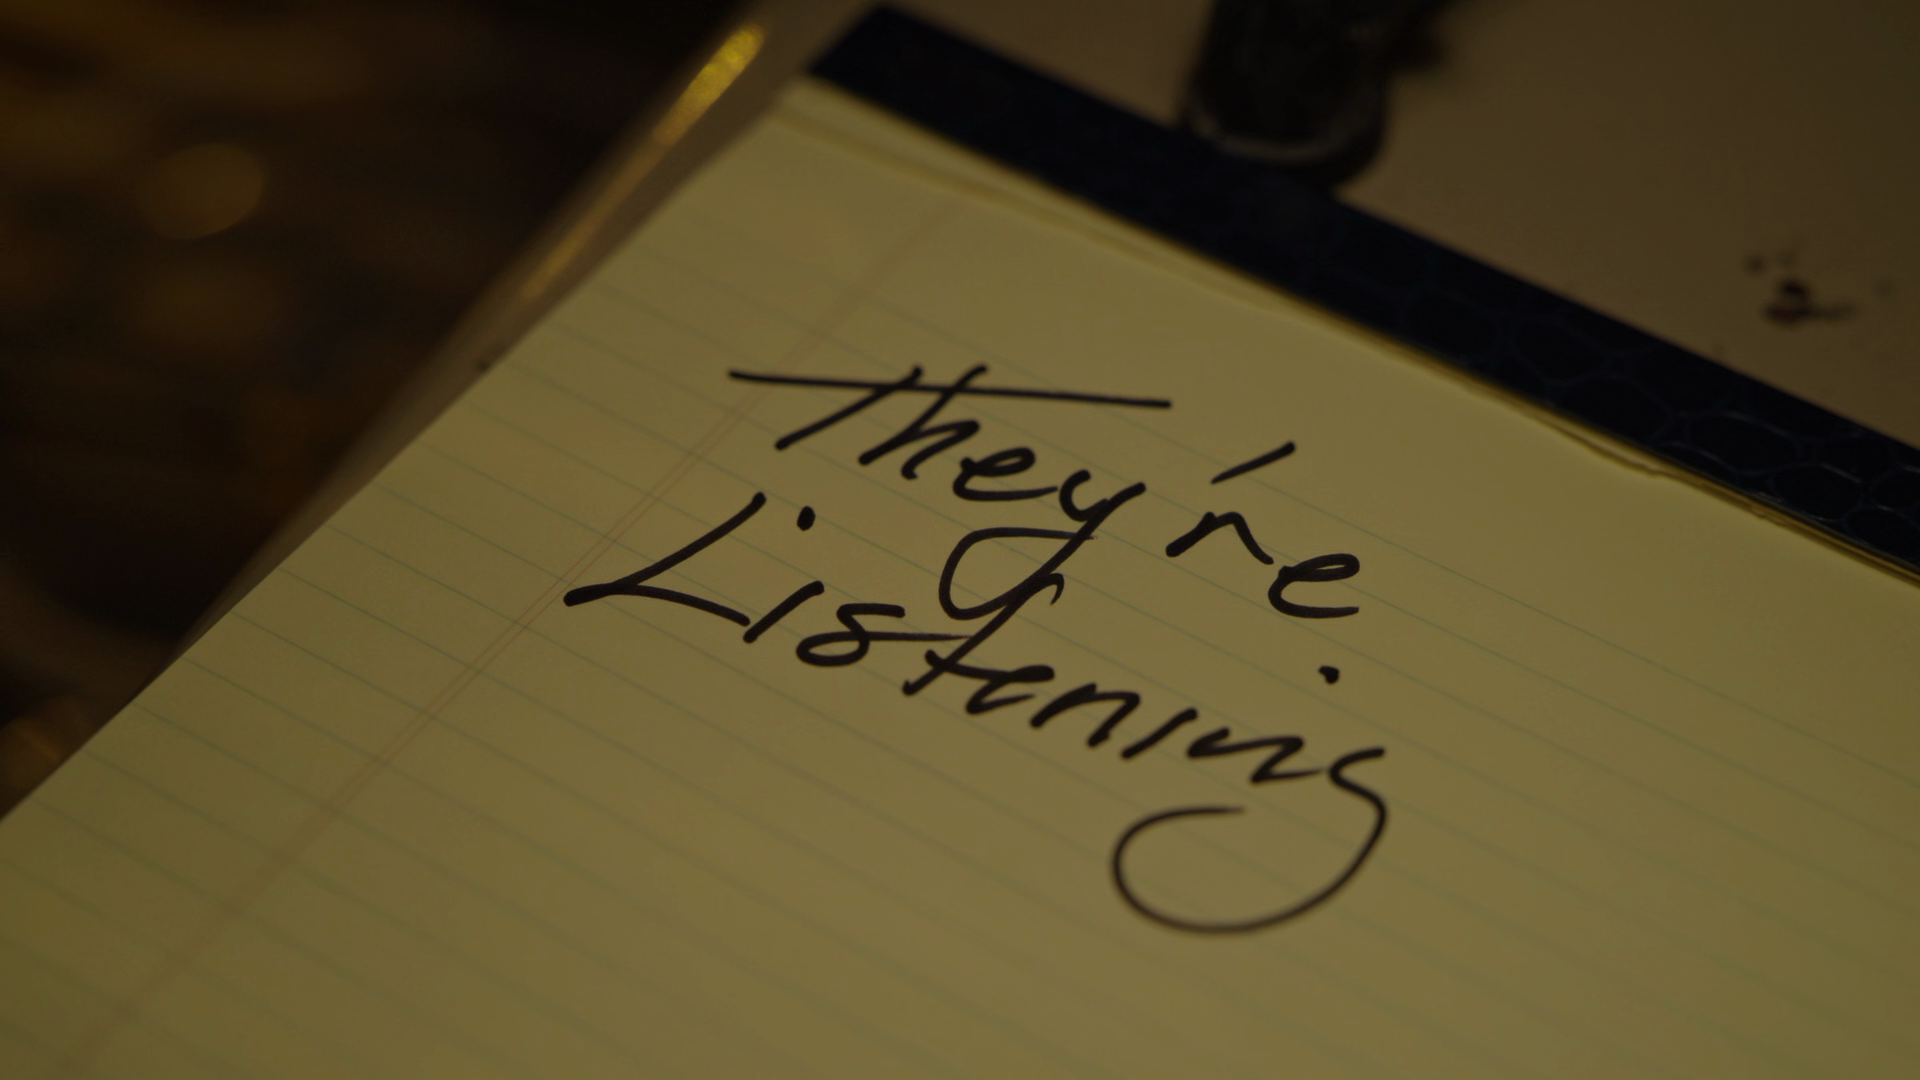 They're
Listening